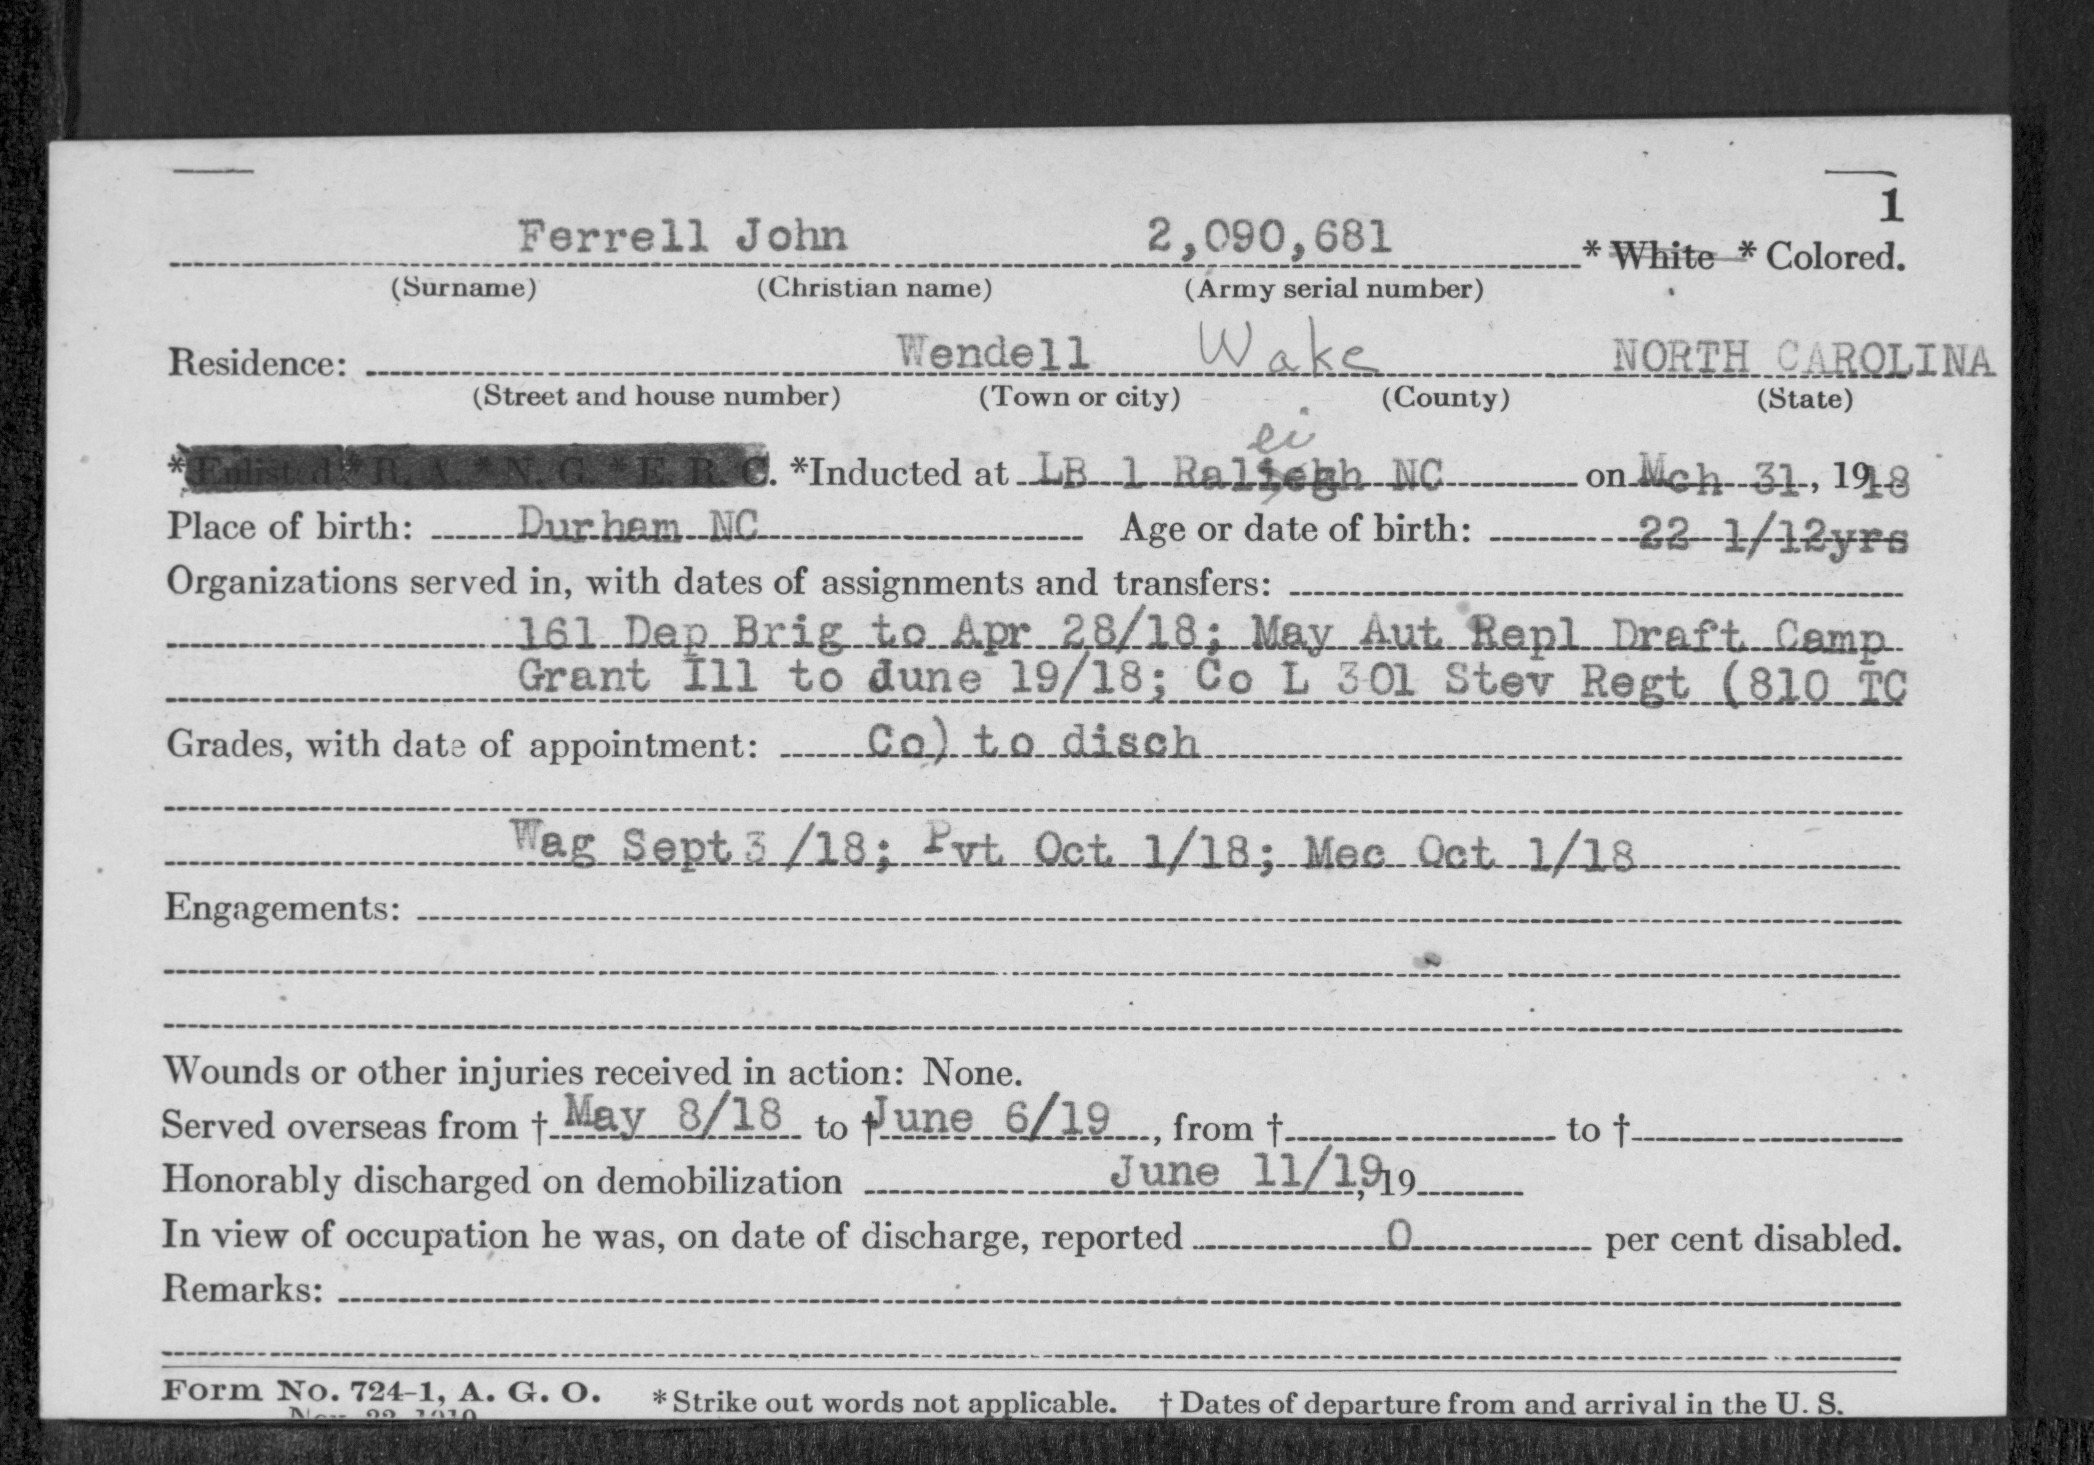 1
Ferrell John 2,090,681 * White * Colored.
(Surname) (Christian name) (Army serial number)
Residence: Wendell Wake NORTH CAROLINA
(Street and house number) (Town or city) (County) (State)
ei
*Enlisted * R. A. * N. G. * E. R. C. *Inducted at LB 1 Raliegh NC on Mch 31, 1918
Place of birth: Durham NC Age or date of birth: 22 1/12yrs
Organizations served in, with dates of assignments and transfers:
161 Dep Brig to Apr 28/18; May Aut Repl Draft Camp
Grant Ill to June 19/18; Co L 301 Stev Regt (810 TC
Grades, with date of appointment: Co) to disch
Wag Sept 3 /18; Pvt Oct 1/18; Mec Oct 1/18
Engagements:
Wounds or other injuries received in action: None.
Served overseas from † May 8/18 to † June 6/19, from † to †
Honorably discharged on demobilization June 11/19, 19
In view of occupation he was, on date of discharge, reported 0 per cent disabled.
Remarks:
Form No. 724-1, A. G. O. * Strike out words not applicable. † Dates of departure from and arrival in the U. S.
Nov. 22 1919